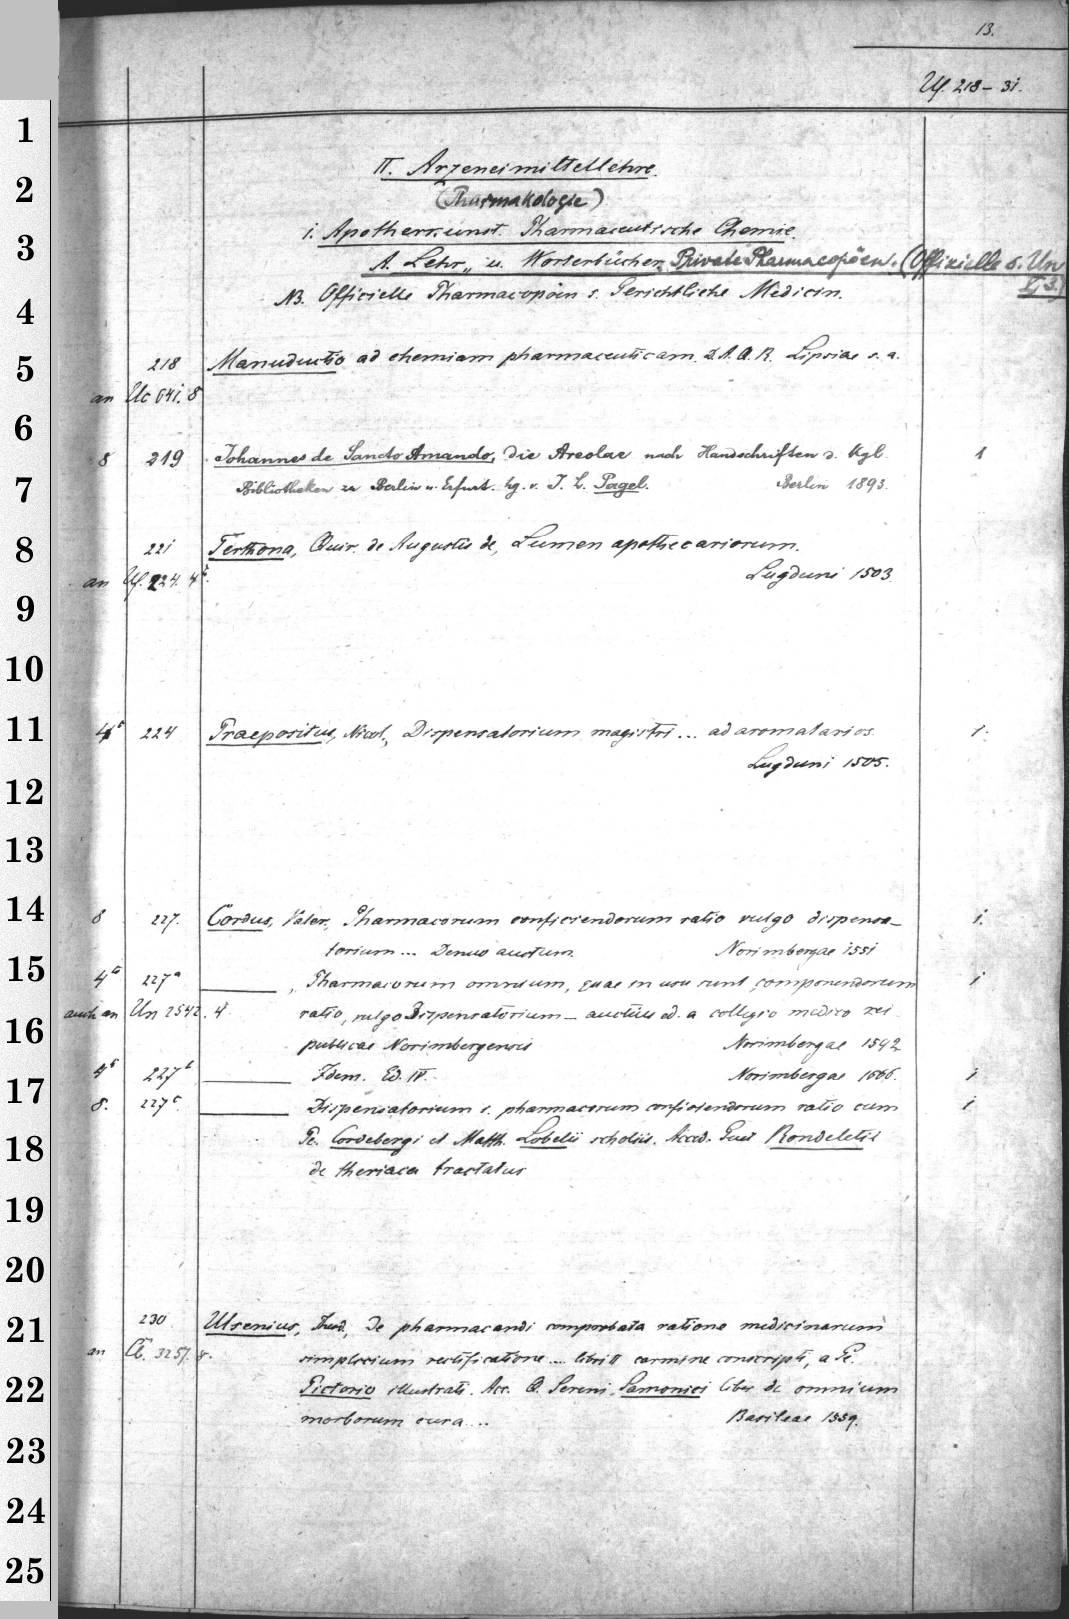 13.
Uf. 218-31.
II. Arzeneimittellehre.
(Pharmakologie)
1. Apotherkunst. Pharmaceutische Chemie.
A. Lehr- u. Wörterbücher. Private Pharmacopöen. (Officielle s. Un
V, 3.)
NB. Officielle Pharmacopöen s. Gerichtliche Medicin.
218 Manuductio ad chemiam pharmaceuticam. D. A. Q. R. Lipsiae s. a.
an Uc 641. 8
8 219 Johannes de Sancto Amando, Die Areolae nach Handschriften d. Kgl. 1
Bibliotheken zu Berlin u. Erfurt. hg. v. J. L. Pagel. Berlin 1893.
221 Terthona, Quir. de Augustis de, Lumen apothecariorum.
an Uf. 224. 4° Lugduni 1503.
4° 224 Praepositus, Nicol., Dispensatorium magistri ... ad aromatarios. 1.
Lugduni 1505.
8 227. Cordus, Valer., Pharmacorum conficiendorum ratio vulgo dispensa- 1.
torium ... Denuo auctum. Norimbergae 1551
4° 227a ———, Pharmacorum omnium, quae in usu sunt, componendorum 1
auch an Un 2542. 4. ratio, vulgo Dispensatorium — auctius ed. a collegio medico rei
publicae Norimbergensis Norimbergae 1592
4° 227b ——— Idem. Ed. IV. Norimbergae 1666. 1
8. 227c. ——— Dispensatorium s. pharmacorum conficiendorum ratio cum 1
Pe. Cordebergi et Matth. Lobelii scholiis. Acced. Guil Rondeletii
de theriaca tractatus
230 Ulsenius, Theod., De pharmacandi comprobata ratione medicinarum
an Cb. 3257. 8. simplicium rectificatione ... libri II carmine conscripti, a Pe.
Pictorio illustrati. Acc. Q. Sereni Samonici liber de omnium
morborum cura ... Basileae 1559.